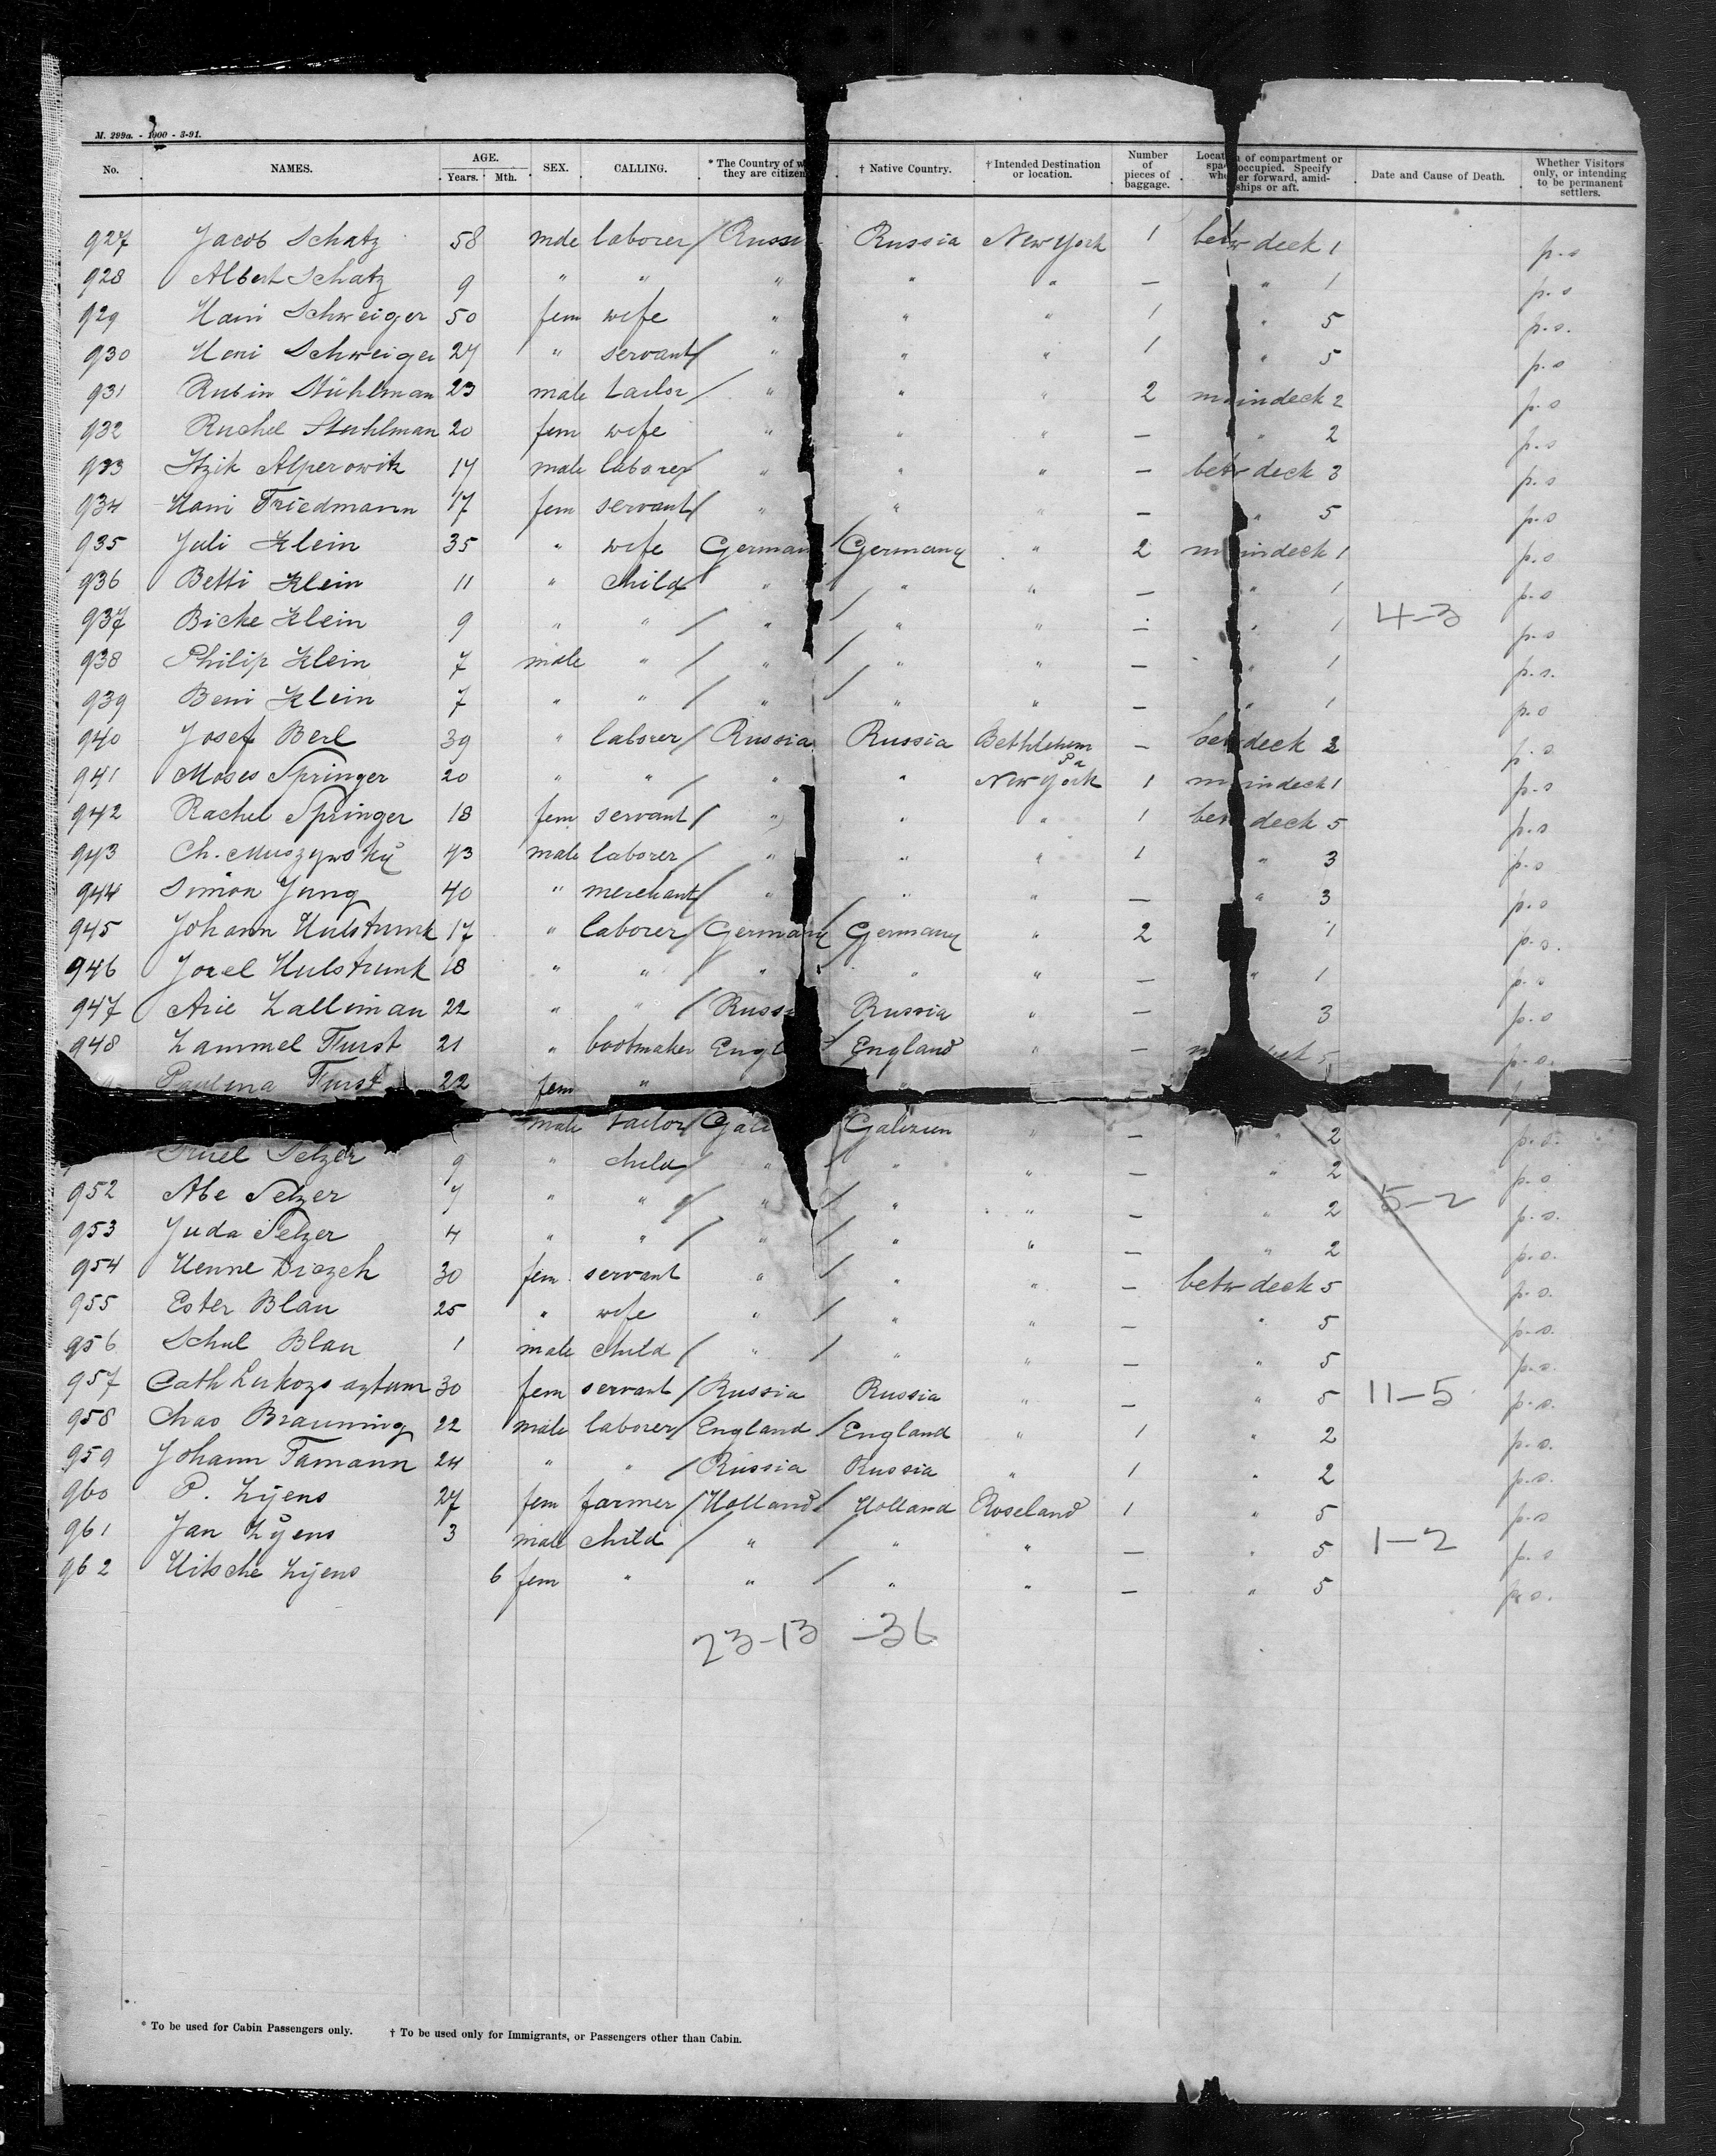 M. 299a. - 1000 - 3-91.
No. NAMES. AGE. Years. Mth. SEX. CALLING. * The Country of w they are citizen † Native Country. † Intended Destination or location. Number of pieces of baggage. Location of compartment or space occupied. Specify whether forward, amidships or aft. Date and Cause of Death. Whether Visitors only, or intending to be permanent settlers.
927 Jacob Schatz 58 male laborer / Russi Russia New York 1 betw deck 1 p.s
928 Albert Schatz 9 " " " " " — " 1 p.s
929 Hani Schweiger 50 fem wife " " " 1 " 5 p.s.
930 Hani Schweiger 27 " servant / " " " 1 " 5 p.s
931 Rubin Stuhlman 23 male tailor / " " " 2 maindeck 2 p.s
932 Ruchel Stuhlman 20 fem wife " " " — " 2 p.s
933 Itzik Alperowitz 17 male laborer / " " " — betw deck 3 p.s
934 Hani Friedmann 17 fem servant / " " " — " 5 p.s
935 Juli Klein 35 " wife German / Germany " 2 maindeck 1 p.s
936 Betti Klein 11 " child / " " " — " 1 p.s
937 Bicke Klein 9 " " / " / " " — " 1 4-3 p.s
938 Philip Klein 7 male " / " / " " — " 1 p.s.
939 Beni Klein 7 " " / " / " " — " 1 p.s
940 Josef Berl 39 " laborer / Russia Russia Bethlehem Pa — betw deck 3 p.s
941 Moses Springer 20 " " / " " New York 1 maindeck 1 p.s
942 Rachel Springer 18 fem servant / " " " 1 betw deck 5 p.s
943 Ch. 43 male laborer / " " " 1 " 3 p.s
944 Simon Jung 40 " merchant / " " " — " 3 p.s
945 Johann Hulstrunk 17 " laborer / Germany / Germany " 2 1 p.s.
946 Hulstrunk 18 " " / " " " — " 1 p.s
947 Arie Zalliman 22 " " / Russi Russia " — 3 p.s
948 Lammel Furst 21 " bootmaker Engl / England " — 5 p.s.
Paulina Furst 22 fem " " —
male tailor / Gali Galizien " — " 2 p.s.
Sruel Selzer 9 " child / " / " " — " 2 p.s
952 Abe Selzer 7 " " / " / " " — " 2 5-2 p.s.
953 Juda Selzer 4 " " / " / " " — " 2 p.s.
954 Henne 30 fem servant " / " " — betw deck 5 p.s.
955 Ester Blau 25 " wife " / " " — " 5 p.s.
956 Schul Blau 1 male child / " / " " — " 5 p.s.
957 Cath 30 fem servant / Russia Russia " — " 5 11-5 p.s.
958 Chas Brauning 22 male laborer / England / England " 1 " 2 p.s.
959 Johann Tamann 24 " " / Russia Russia " 1 " 2 p.s.
960 P. Zijens 27 fem farmer / Holland / Holland Roseland 1 " 5 p.s
961 Jan Zijens 3 male child / " / " " — " 5 1-2 p.s
962 Hitsche Zijens 6 fem " " / " " — " 5 p.s.
23-13 -36
* To be used for Cabin Passengers only. † To be used only for Immigrants, or Passengers other than Cabin.